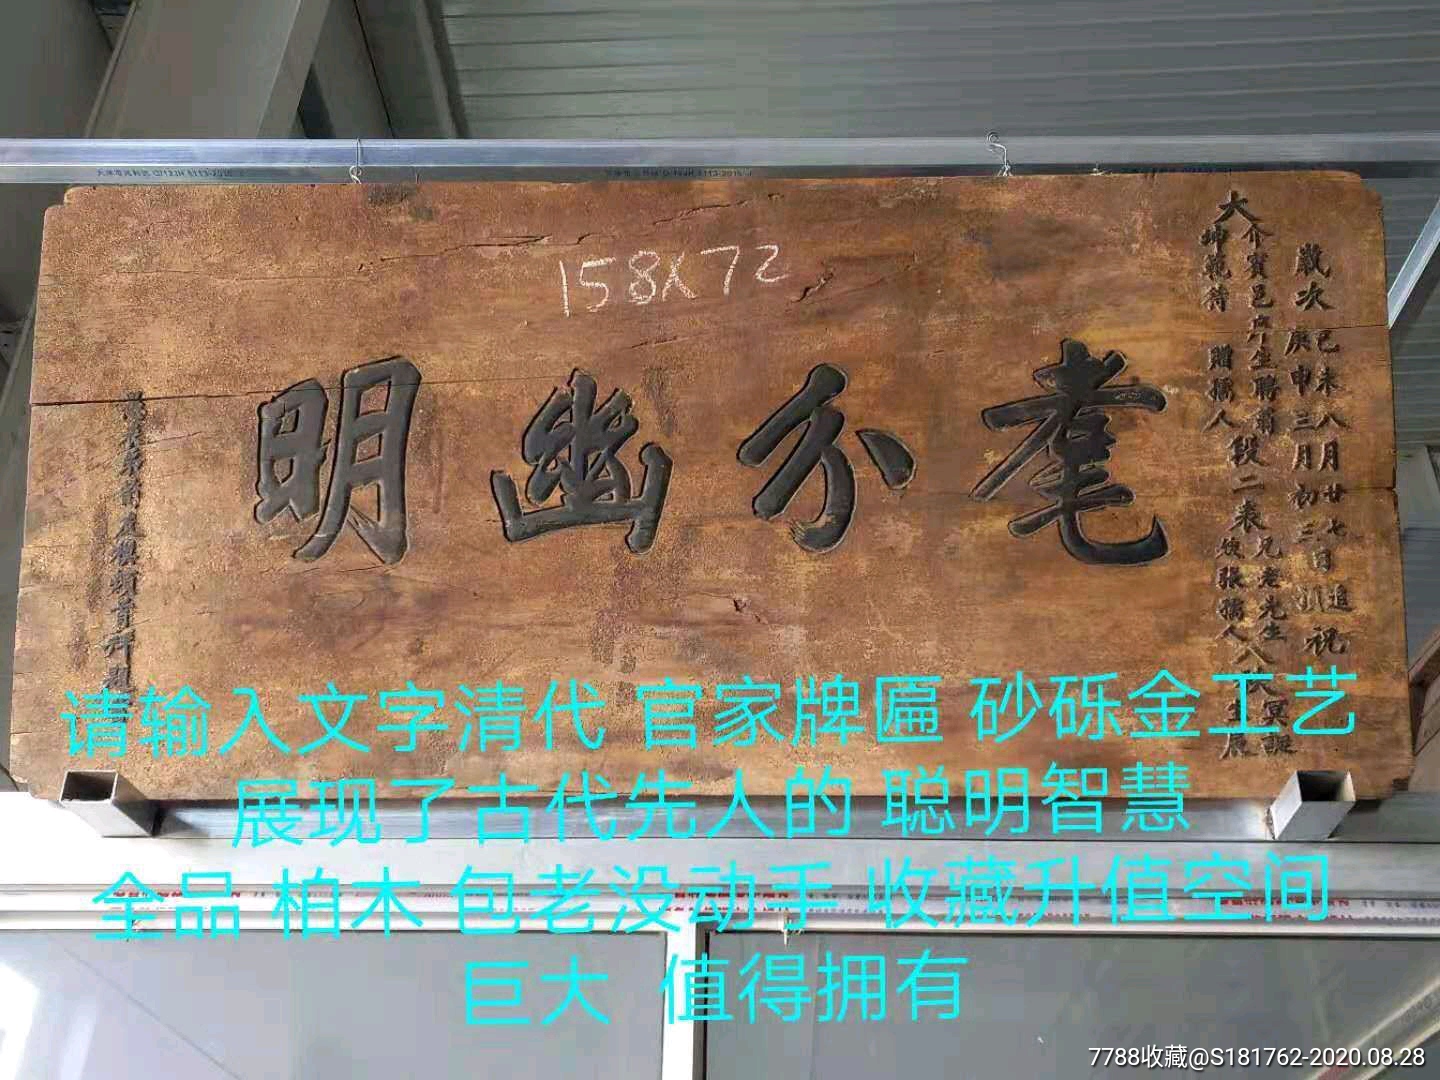 158X72
耄分幽明
歲次己未八月廿七日追祝
庚申三月初三日預
大介賓邑庠生聘翁段二表兄老先生八秩冥誕
坤範待贈孺人 嫂張孺人 生辰
頓首拜題
请输入文字清代 官家牌匾 砂砾金工艺
展现了古代先人的 聪明智慧
全品 柏木 包老没动手 收藏升值空间
巨大 值得拥有
7788收藏@S181762-2020.08.28